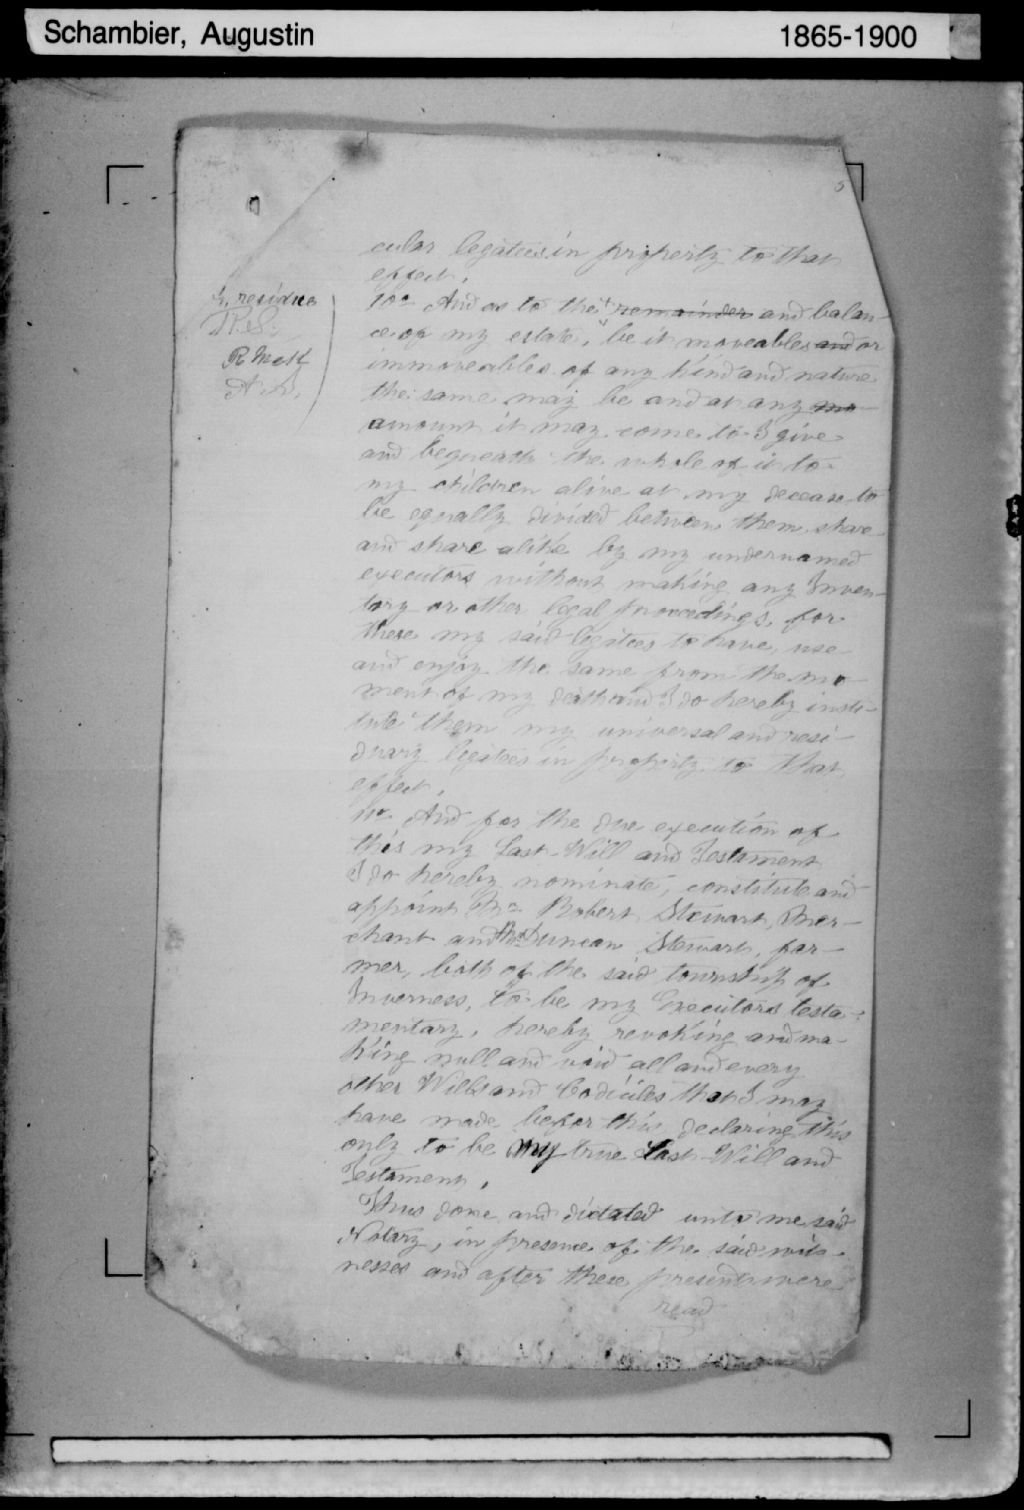 Schambier, Augustin 1865-1900
5
cular legatees in property to that
effect.
10o And as to the + remainder and balan-
ce of my estate, be it moveables and or
immoveables of any kind and nature
the same may be and at any mo
amount it may come to I give
and bequeath the whole of it to
my children alive at my decease to
be equally divided between them share
and share alike by my undernamed
executors without making any Inven-
tory or other legal proceedings, for
these my said legatees to have, use
and enjoy the same from the mo-
ment of my death and I do hereby insti-
tute them my universal and resi-
duary legatees in property to that
effect.
11o And for the due execution of
this my Last Will and Testament
I do hereby nominate, constitute and
appoint Mr Robert Stewart, Mer-
chant and Mr Duncan Stewart, far-
mer, both of the said township of
Inverness, to be my Executors testa-
mentary, hereby revoking and ma-
king null and void all and every
other Wills and Codiciles that I may
have made befor this declaring this
only to be my true Last Will and
Testament.
Thus done and dictated unto me said
Notary, in presence of the said wit-
nesses and after these presents were
read
+ residue
R McK